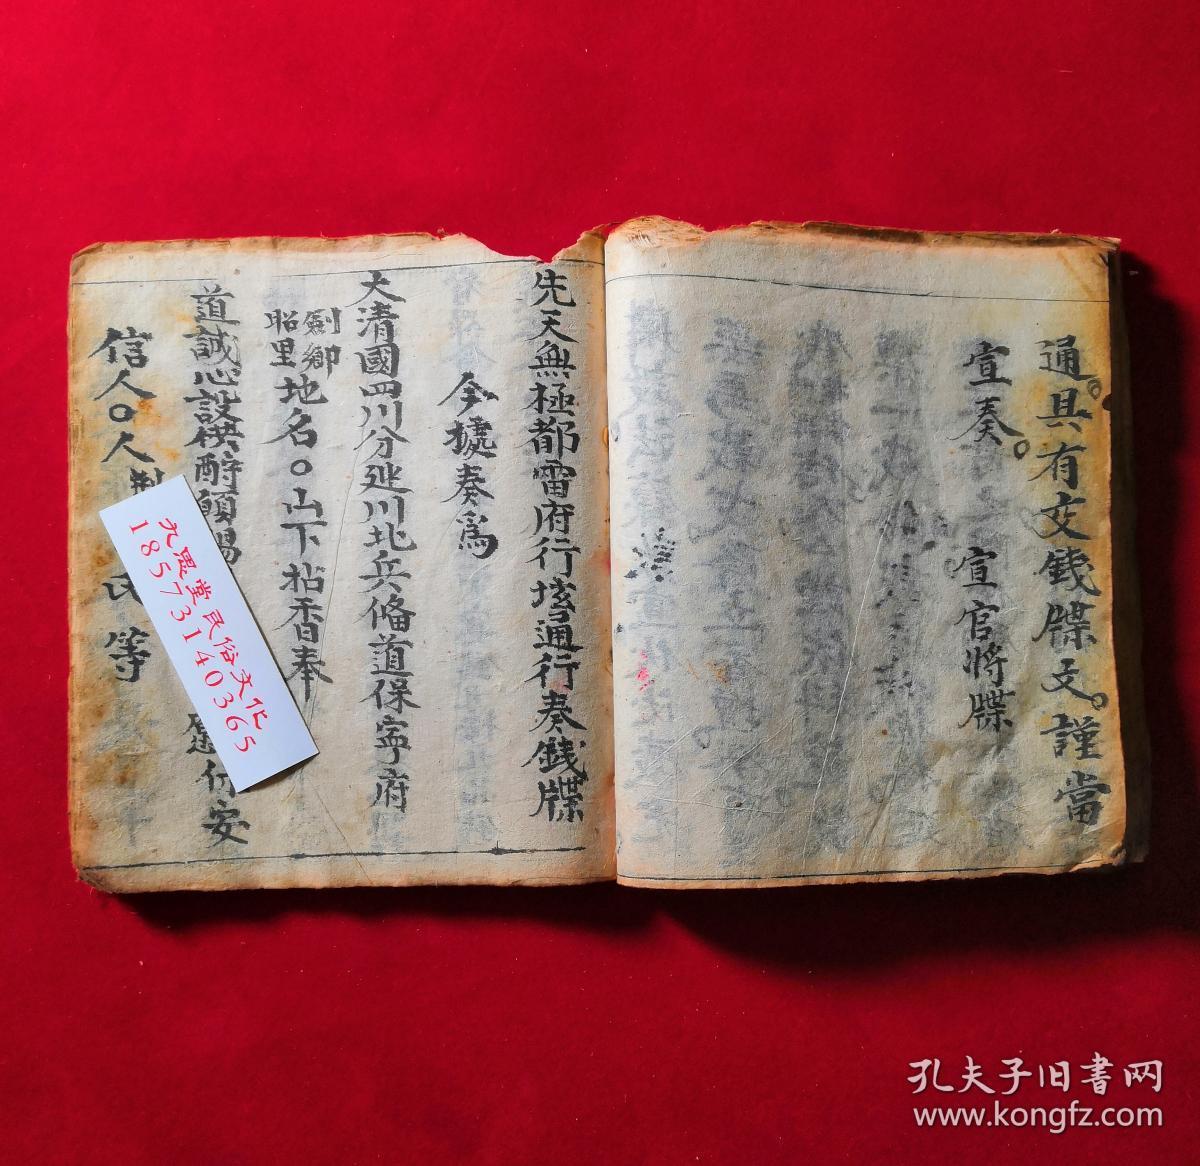 通。具有文錢牒文。謹當
宣奏。
宣官將牒
先天無極都雷府行壇通行奏錢牒
今據奏為
大清國四川分巡川北兵備道保寧府
劍鄉
昭里
地名〇山下拈香奉
道誠心設供酧願賜
付安
信人〇人
氏 等
九思堂民俗文化
18573140365
孔夫子旧书网
www.kongfz.com